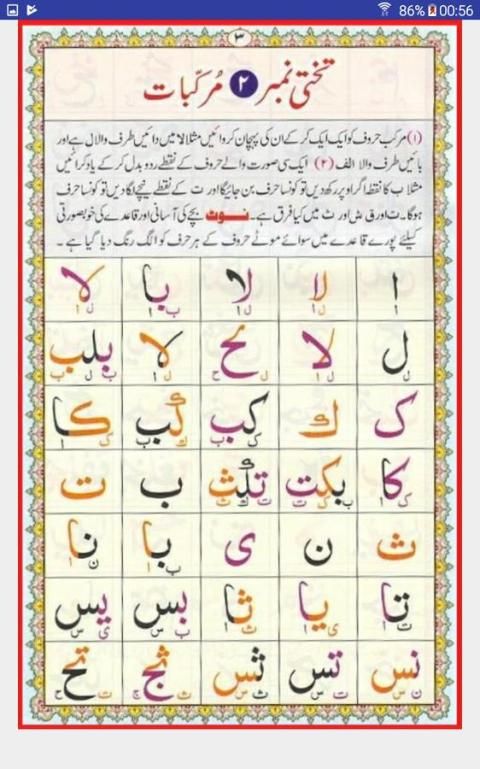 86% 00:56
۳
تختی نمبر ۲ مرکّبات
(۱) مرکب حروف کو ایک ایک کر کے ان کی پہچان کروائیں مثلا لا میں دائیں طرف والا ل ہے اور
بائیں طرف والا الف (۲) ایک سی صورت والے حروف کے نقطے ردو بدل کر کے یاد کرائیں
مثلا ب کا نقطہ اگر اوپر رکھ دیں تو کونسا حرف بن جائیگا اور ت کے نقطے نیچے لگا دیں تو کونسا حرف
ہوگا۔ ث اور ق ش اور ث میں کیا فرق ہے۔ نوٹ بچے کی آسانی اور قاعدے کی خوبصورتی
کیلئے پورے قاعدے میں سوائے موٹے حروف کے ہر حرف کو الگ رنگ دیا گیا ہے۔
ا لا لا با لا
ل لا لح لا بلب
ک ك کب گب كا
کا بکت تلكث ب ت
ث ن ی با نا
تا یا ثا بس یس
نس تس ثس ثج تح